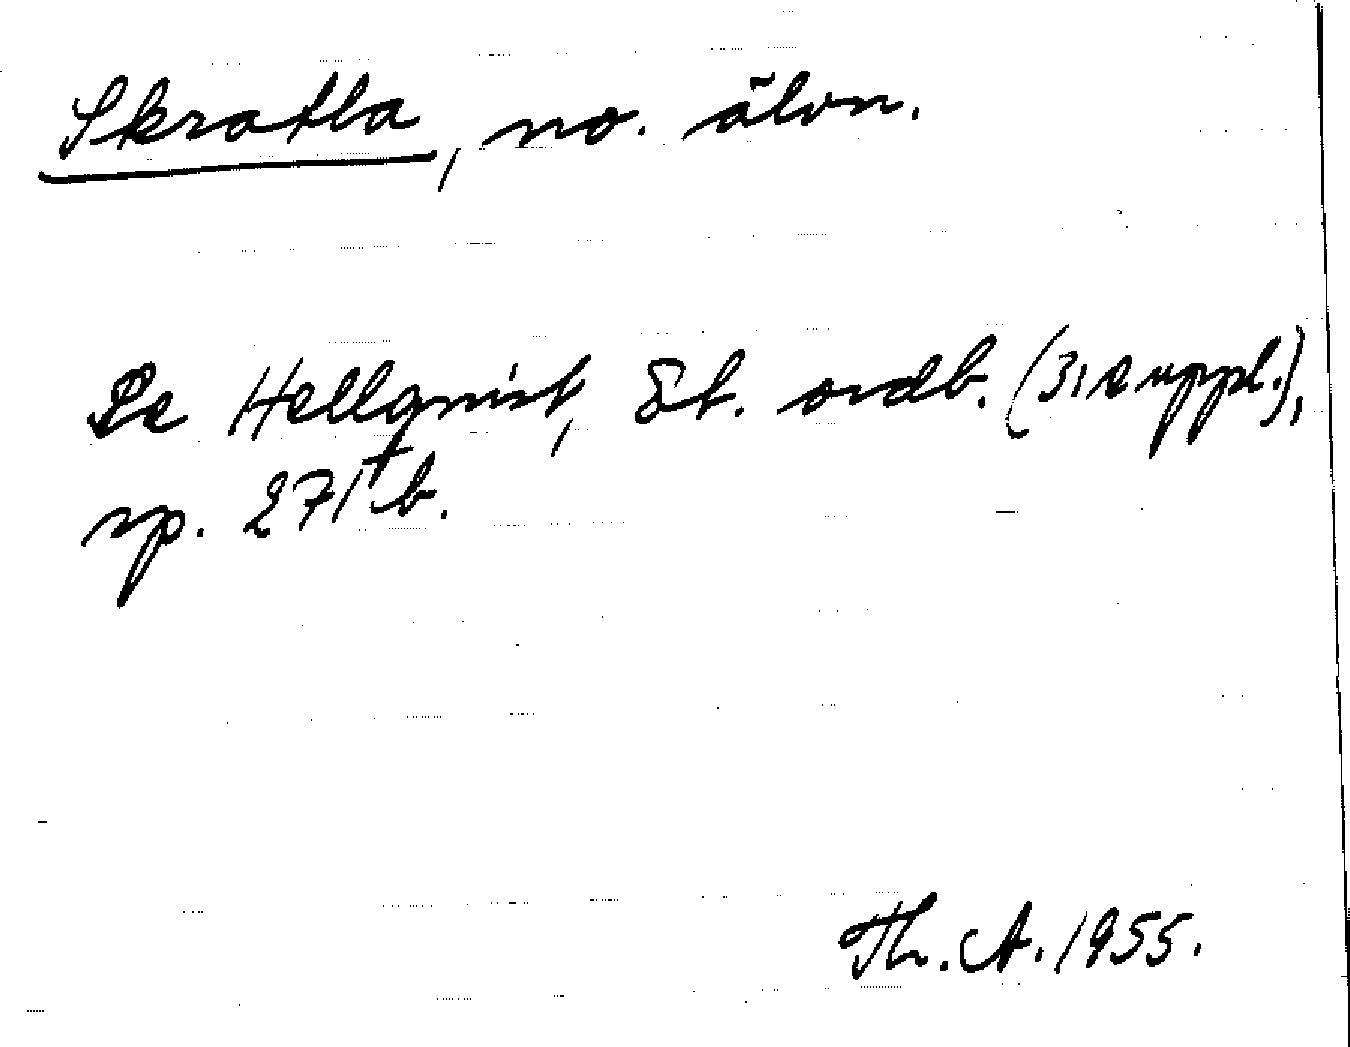 Skratla, no. älvn.
Se Hellqvist, Et. ordb. (3:e uppl.),
sp. 271 b.
Th. A. 1955.